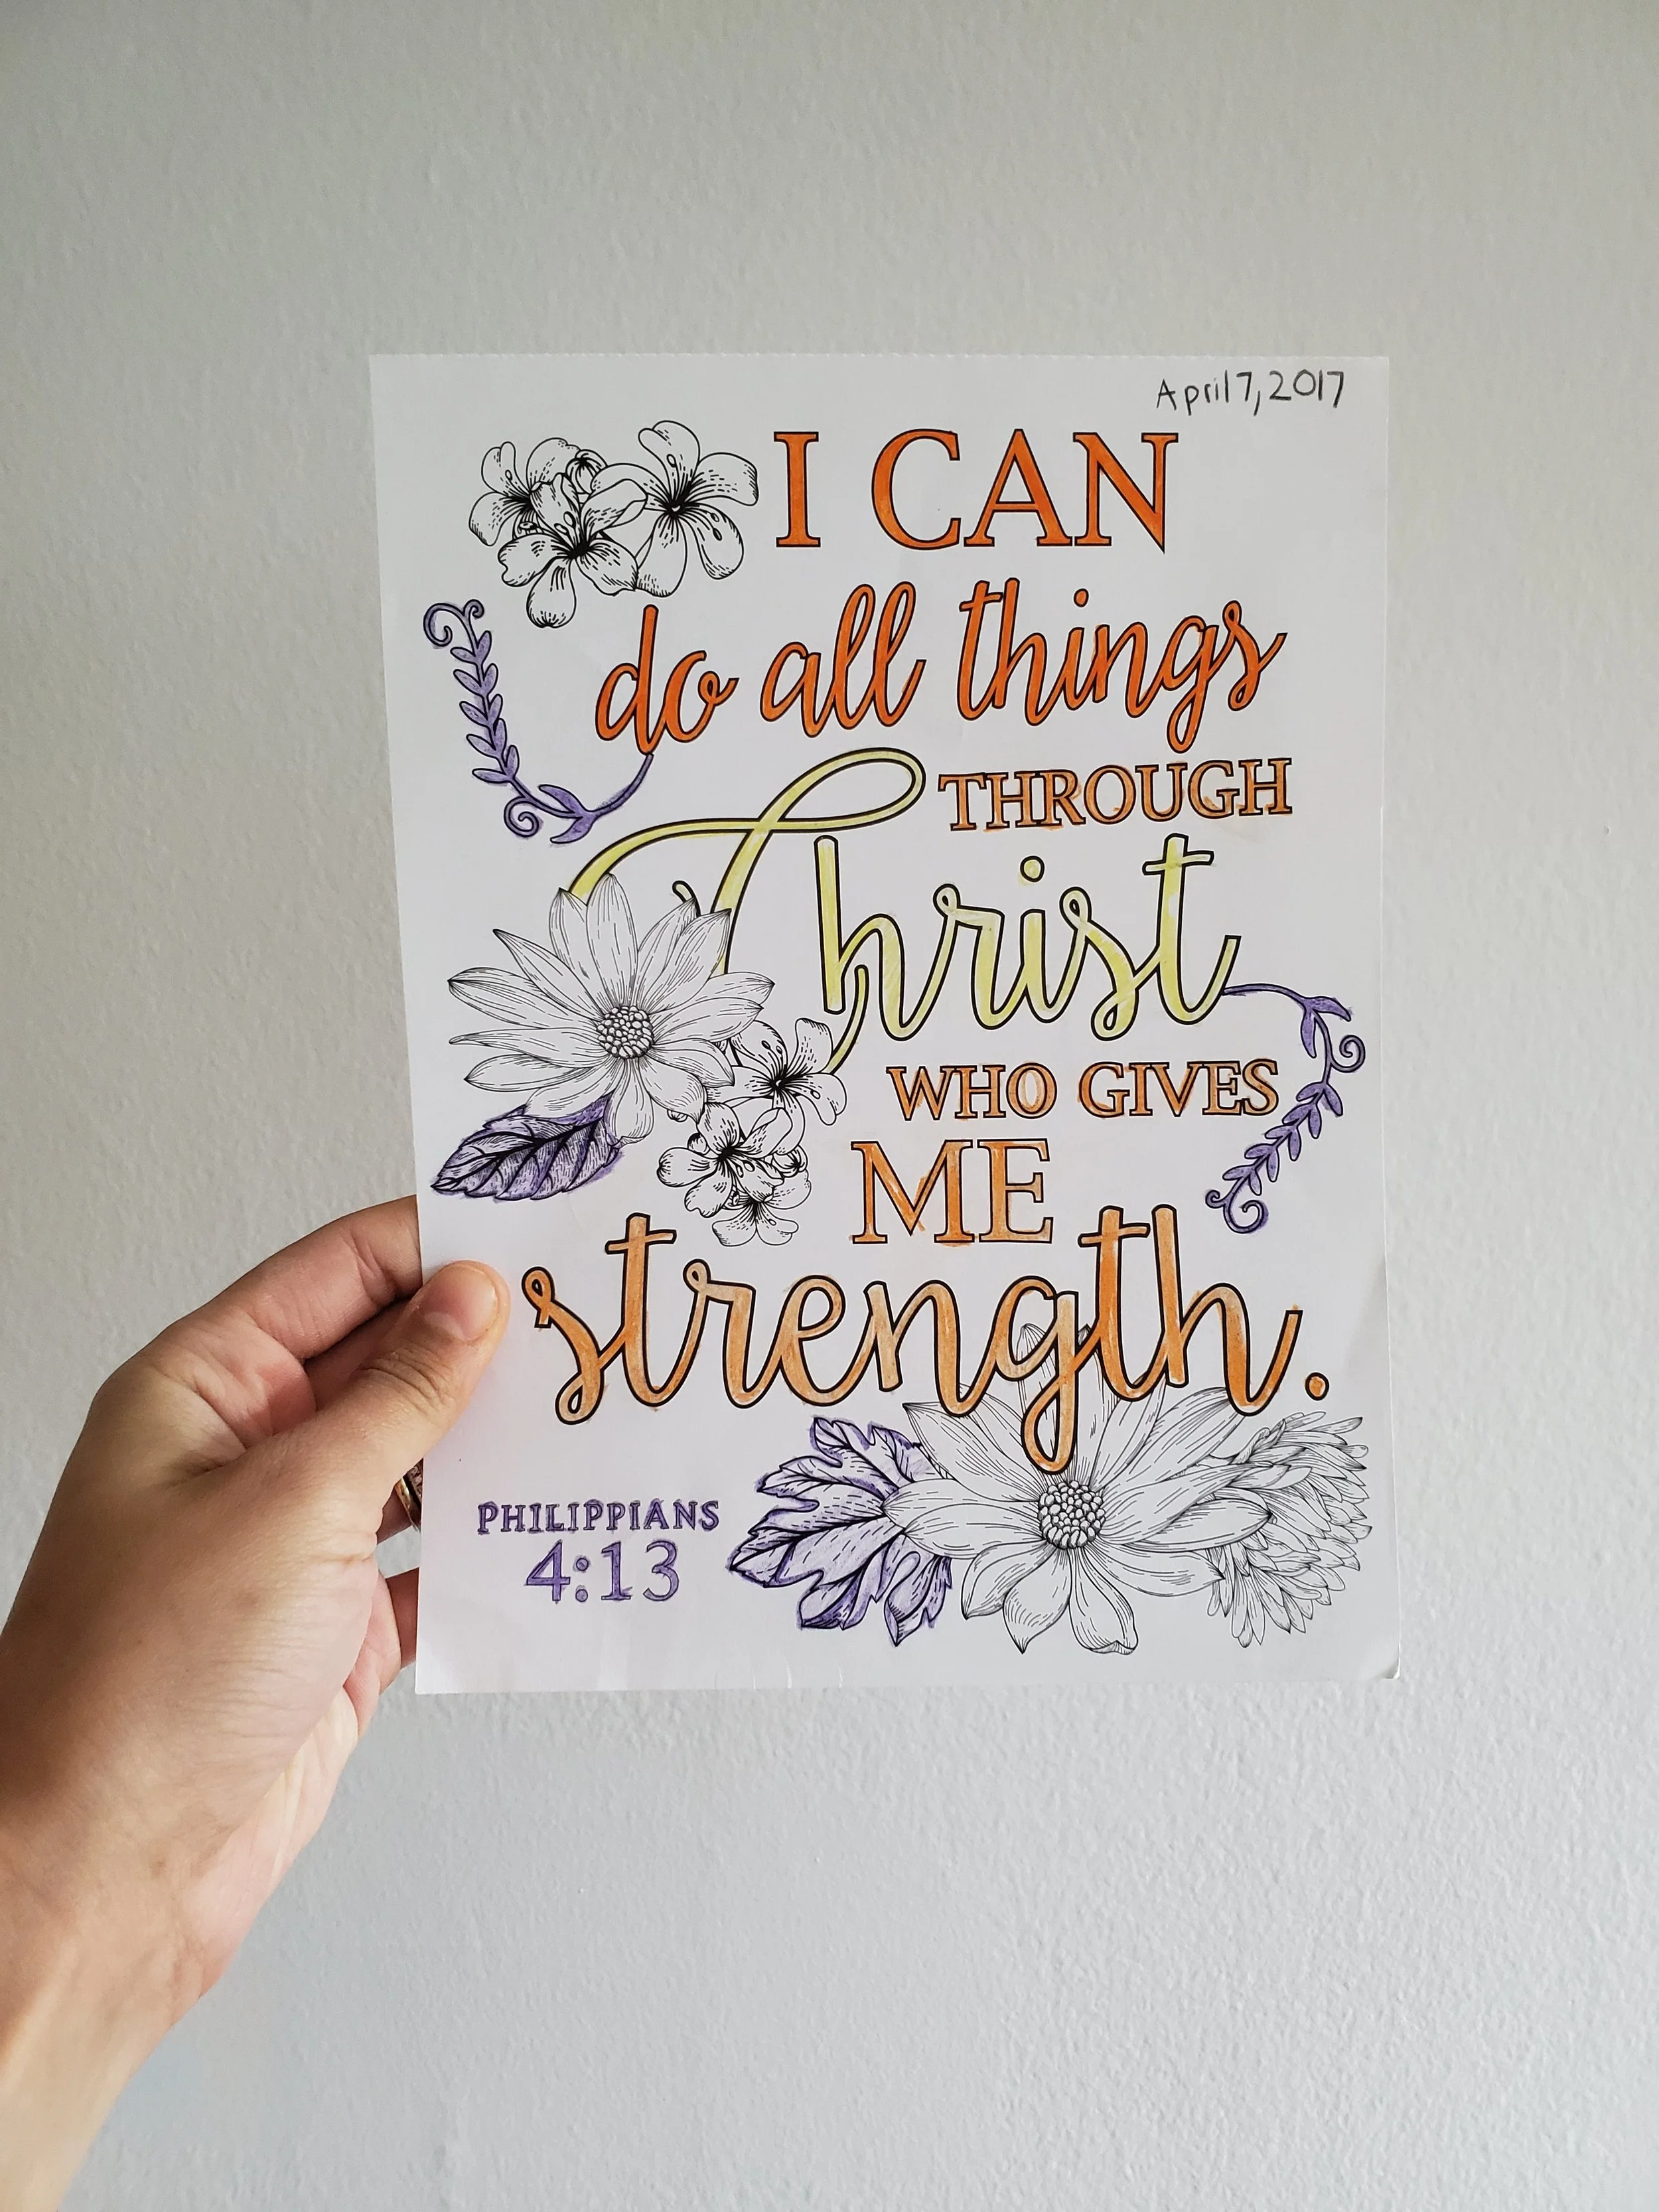 April 7, 2017
I CAN
do all things
THROUGH
Christ
WHO GIVES
ME
strength.
PHILIPPIANS
4:13